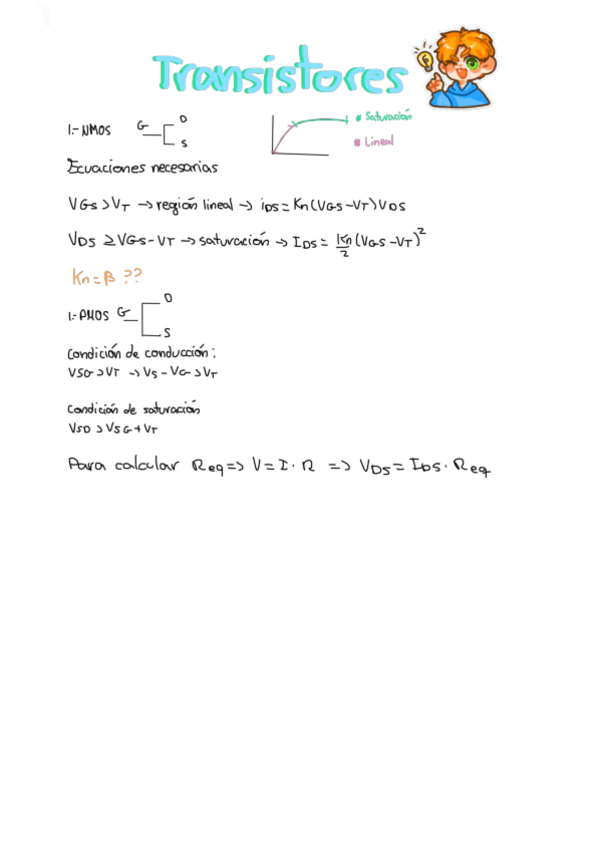 Transistores
1.- NMOS G D S
Saturación
Lineal
Ecuaciones necesarias
VGS > VT → región lineal → iDS = Kn (VGS - VT) VDS
VDS ≥ VGS - VT → saturación → IDS = Kn/2 (VGS - VT)²
Kn = β ??
1.- PMOS G D S
Condición de conducción:
VSG > VT → VS - VG > VT
Condición de saturación
VSD > VSG + VT
Para calcular Req => V = I · R => VDS = IDS · Req